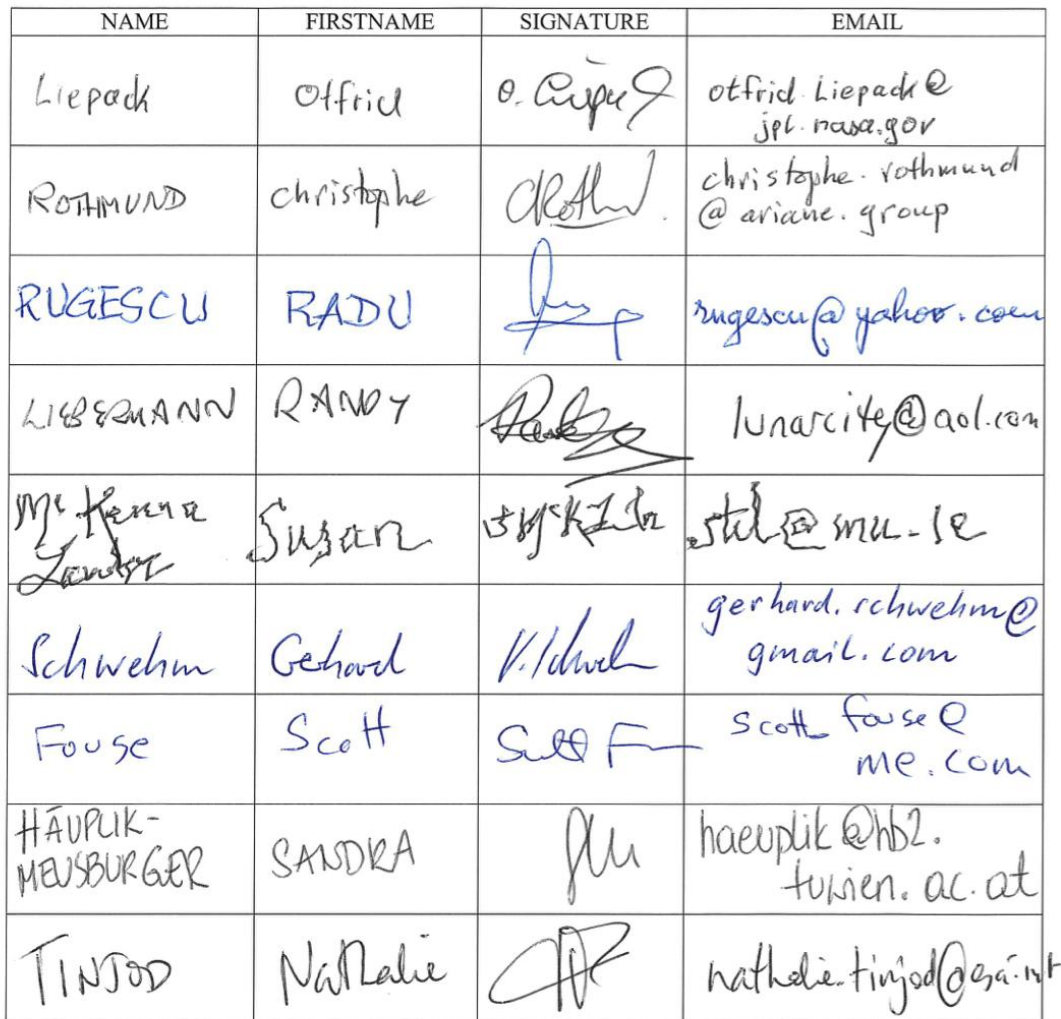 NAME FIRSTNAME SIGNATURE EMAIL
Liepack Otfrid otfrid.Liepack@
jpl.nasa.gov
ROTHMUND christophe christophe.rothmund
@ariane.group
RUGESCU RADU rugescu@yahoo.com
LIEBERMANN RANDY lunarcity@aol.com
McKenna Susan
Schwehm Gehard gerhard.schwehm@
gmail.com
Fouse Scott Scott Fouse@
me.com
HÄUPLIK-
MEUSBURGER SANDRA haeuplik@hb2.
tuwien.ac.at
TINJOD Nathalie nathalie.tinjod@esa.int